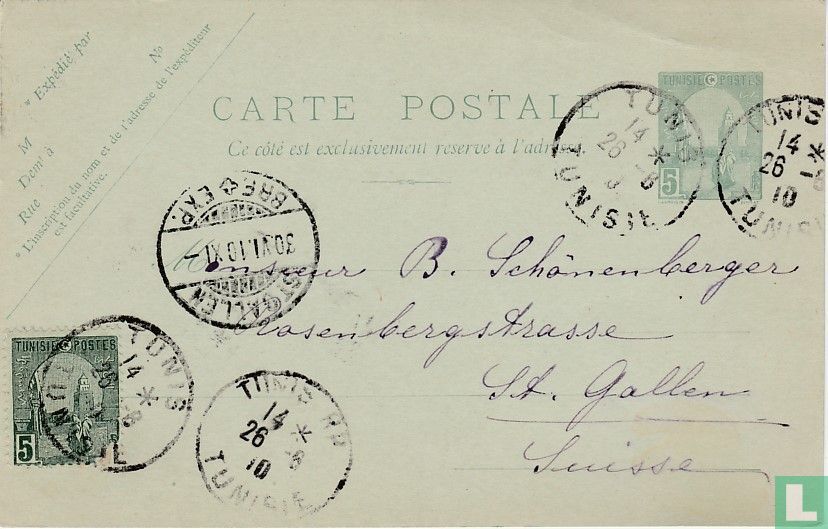 * Expédié par
No
M
Demt à
Rue
* L'inscription du nom et de l'adresse de l'expéditeur
est facultative.
CARTE POSTALE
Ce côté est exclusivement reservé à l'adresse.
TUNISIE POSTES
5
TUNIS
14 *
26 -6
TUNISIE
TUNIS
14 *
26 -6
10
TUNISIE
BRF EXP.
30.VI.10.XI-
ST. GALLEN
Monsieur B. Schönenberger
Rosenbergstrasse
St. Gallen
Suisse
TUNISIE POSTES
5
TUNIS
14 *
26 -6
TUNISIE
TUNIS RP
14 *
26 -6
10
TUNISIE
L